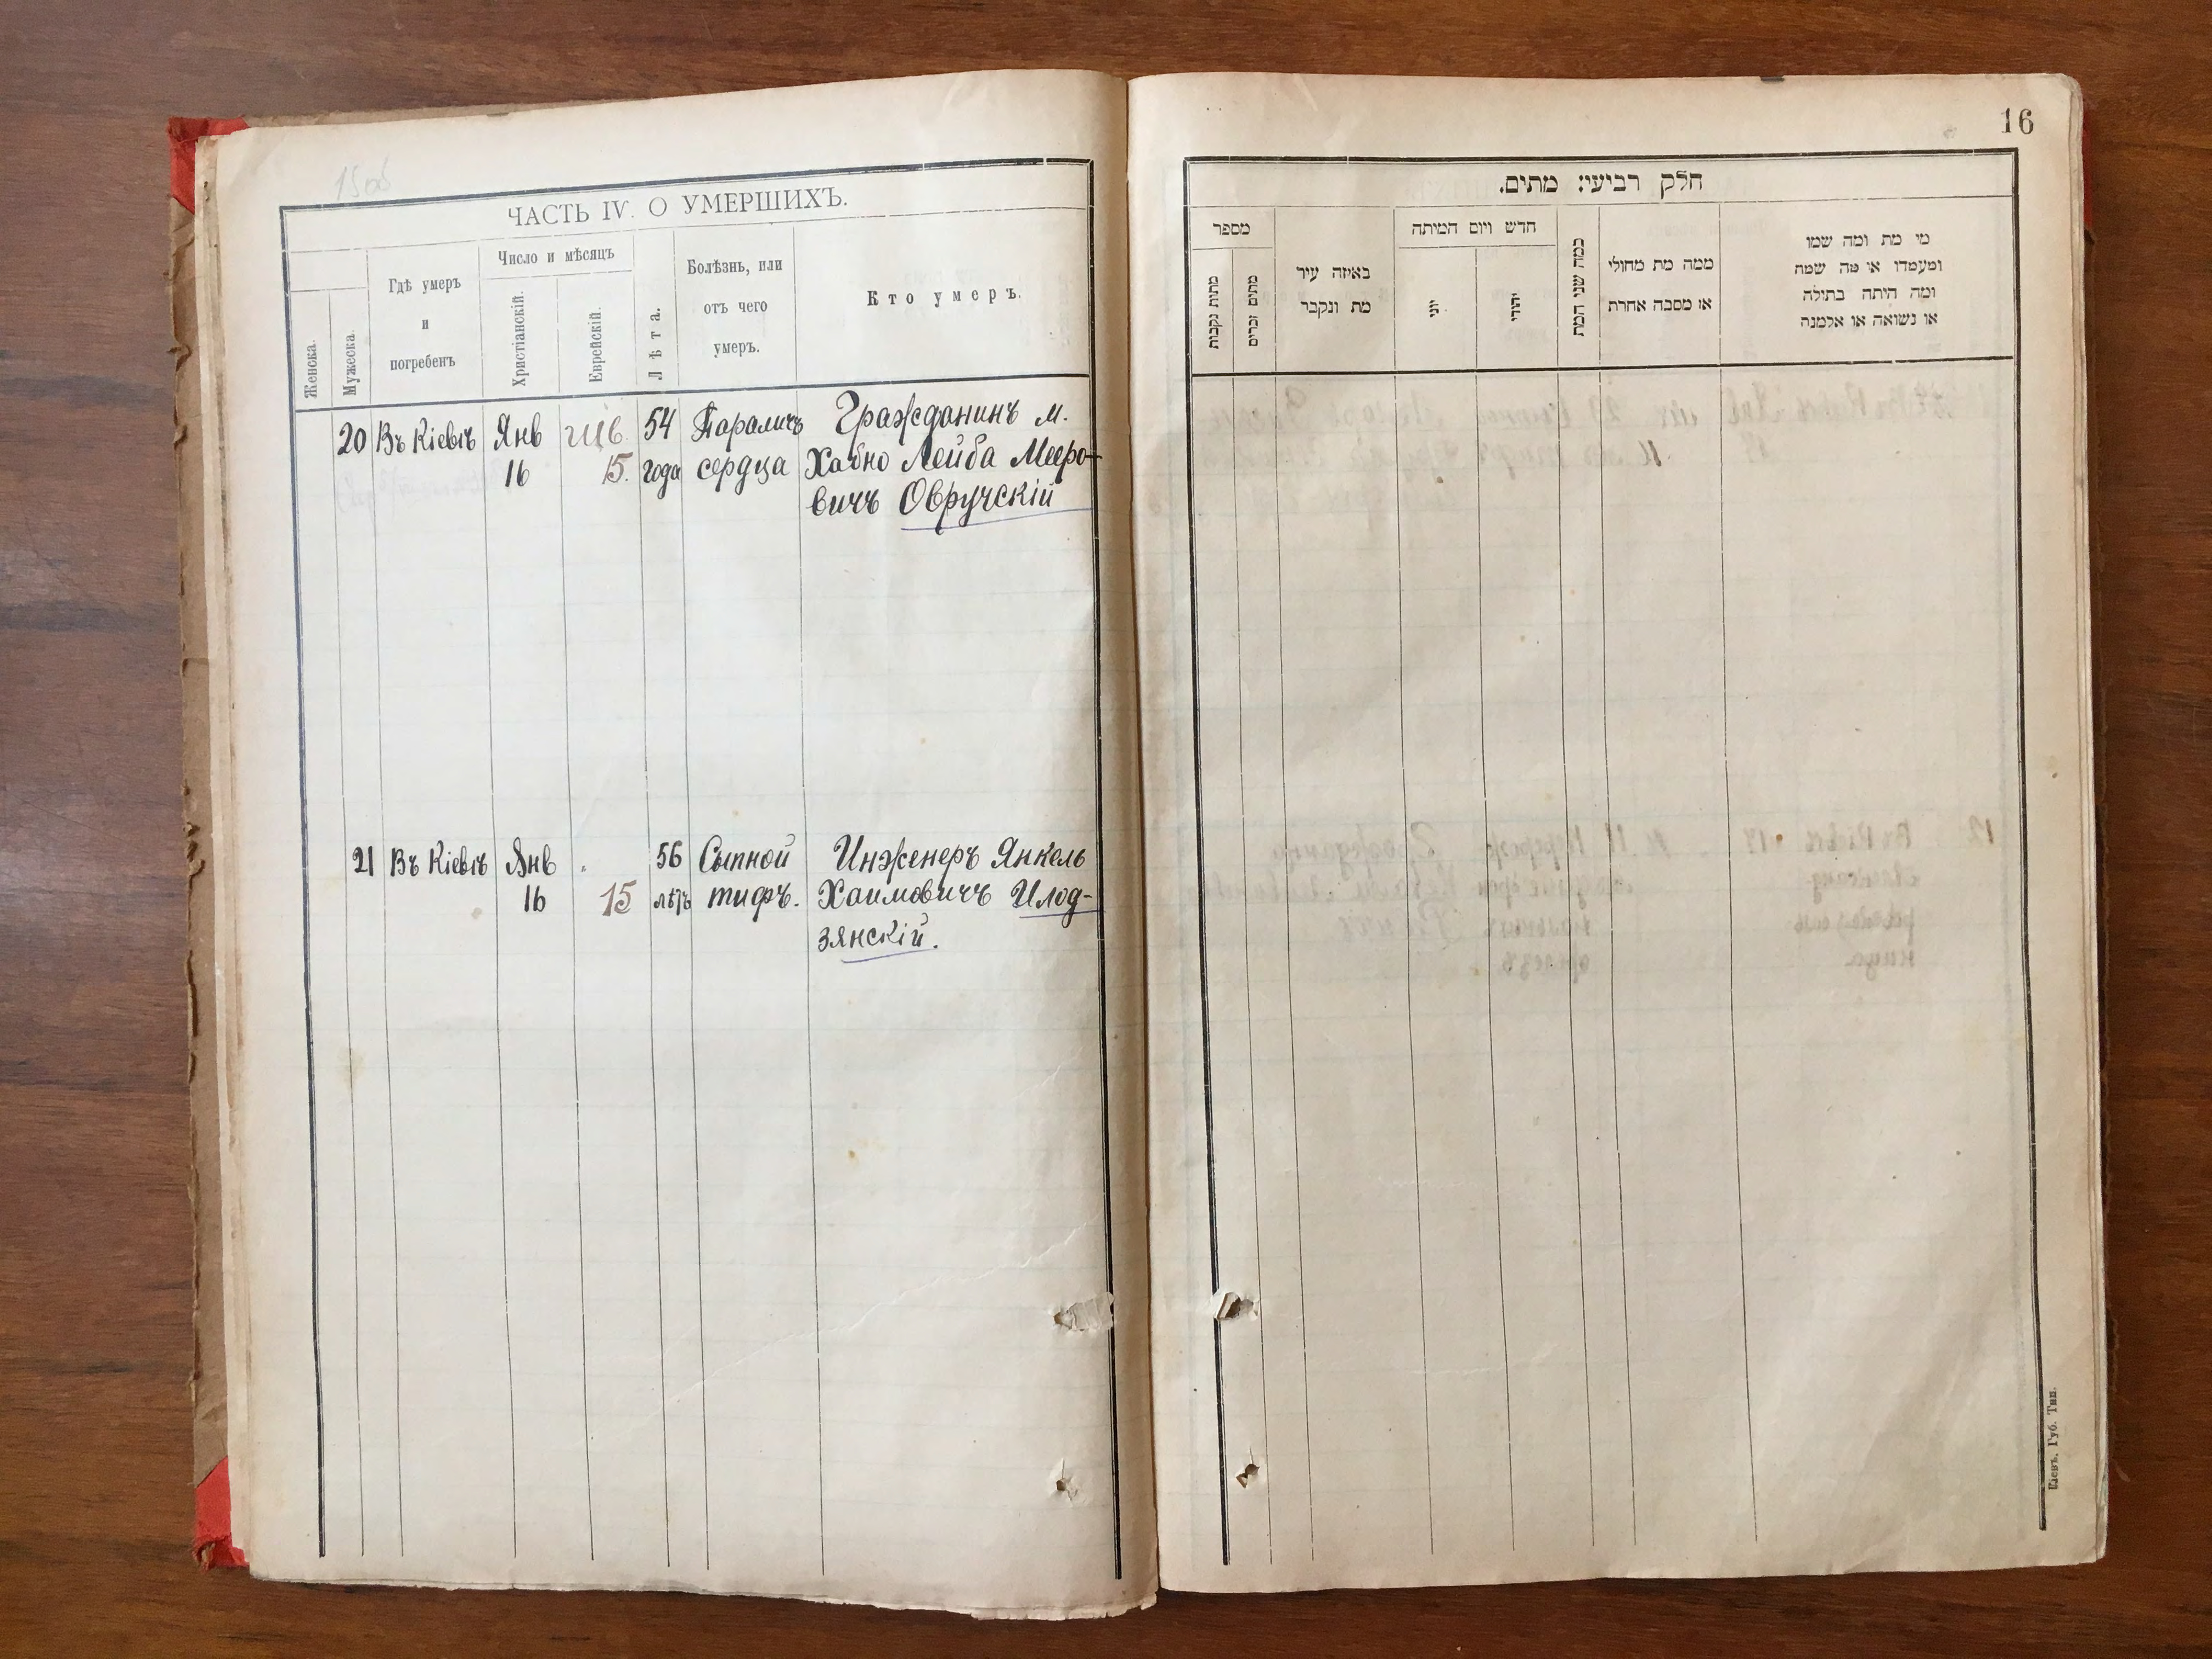 15об
ЧАСТЬ IV. О УМЕРШИХЪ.
Женска.
Мужеска.
Гдѣ умеръ
и
погребенъ
Число и мѣсяцъ
Христіанскій.
Еврейскій.
Лѣта.
Болѣзнь, или
отъ чего
умеръ.
Кто умеръ.
20 Въ Кіевѣ Янв 54 Параличъ Гражданинъ м.
16 15. года сердца Хабно Лейба Мееро-
вичъ Овручскій
21 Въ Кіевѣ Янв 56 Сыпной Инженеръ Янкель
16 15 лѣтъ тифъ. Хаимовичъ Илод-
зянскій.
16
חלק רביעי: מתים.
מספר
מתות נקבות
מתים זכרים
באיזה עיר
מת ונקבר
חדש ויום המיתה
יוני
יהודי
כמה שני המת
ממה מת מחולי
או מסבה אחרת
מי מת ומה שמו
ומעמדו או מה שמה
ומה היתה בתולה
או נשואה או אלמנה
Кіевъ. Губ. Тип.